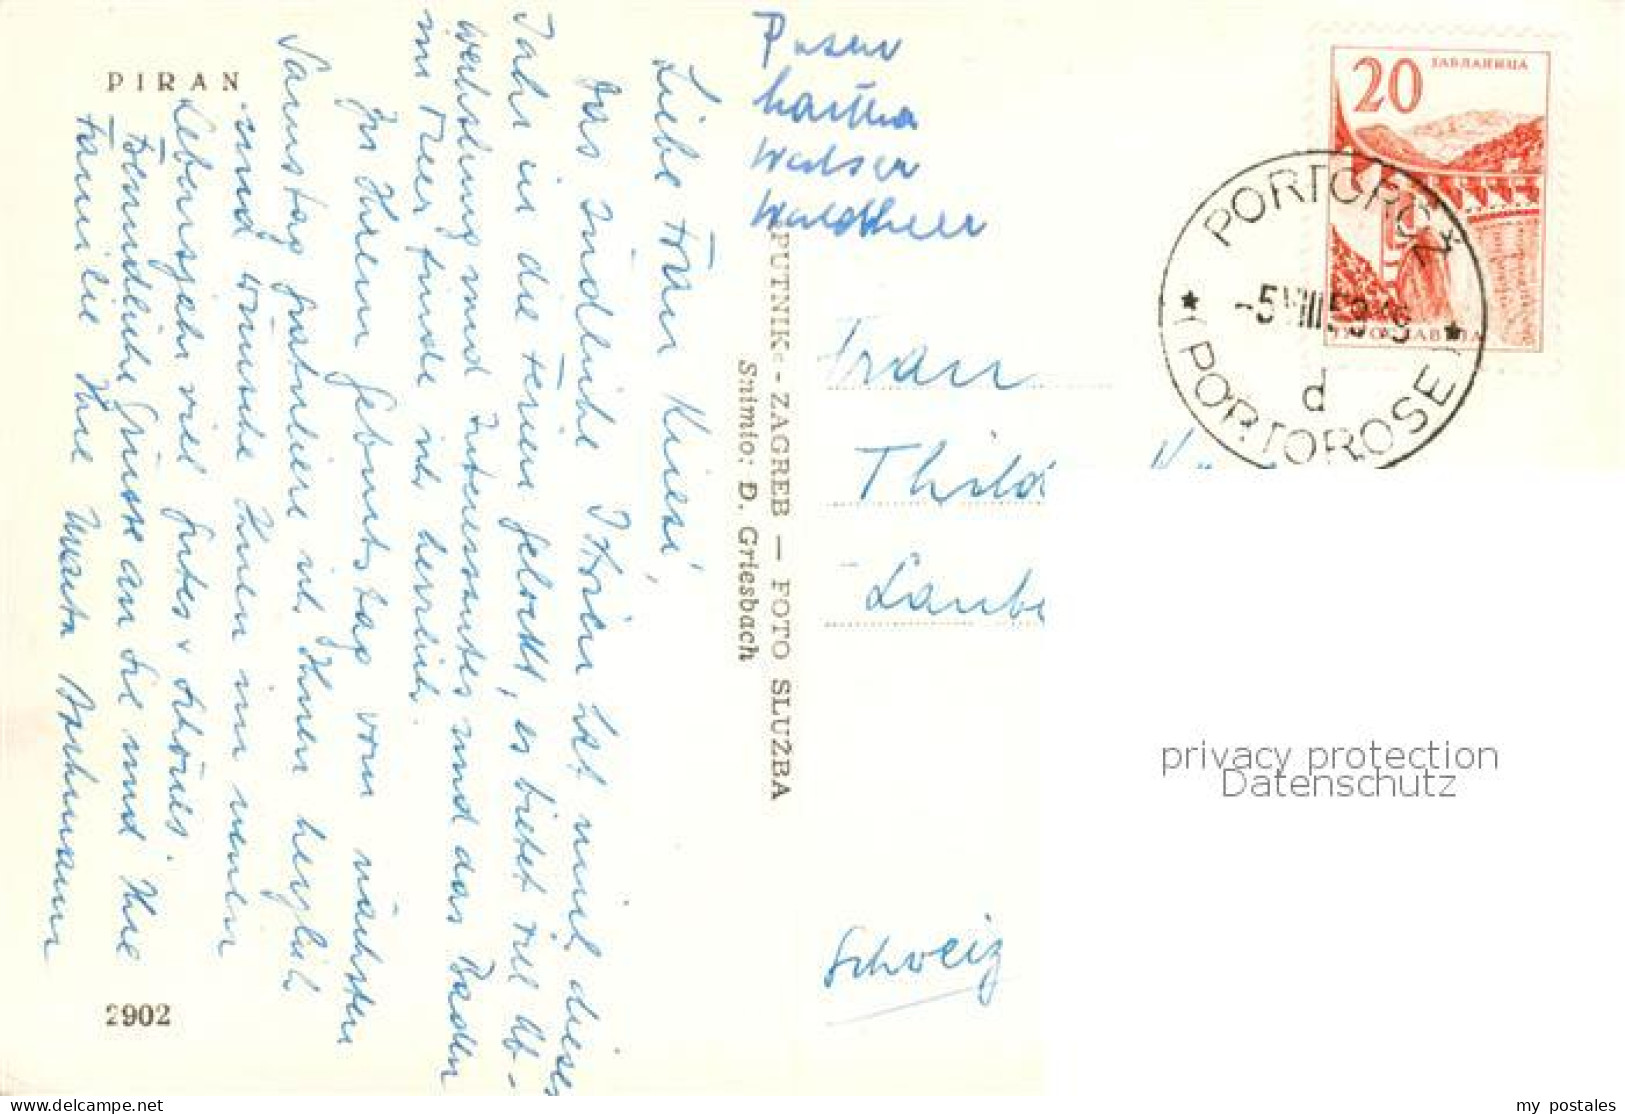 PIRAN
Liebe Frau Kuesi,
Das südliche Istrien hat mich dieses
Jahr in die Ferien gelockt, es bietet viel Ab-
wechslung und Interessantes und das Baden
im Meer finde ich herrlich.
Zu Ihrem Geburtstag vom nächsten
Samstag gratuliere ich Ihnen herzlich
und wünsche Ihnen im neuen
Lebensjahr viel Gutes & Schönes.
Freundliche Grüsse an Sie und Ihre
Familie Ihre Marta Bachmann
2902
PUTNIK - ZAGREB — FOTO SLUŽBA
Snimio: Đ. Griesbach
Martha
20
ЈАБЛАНИЦА
ЈУГОСЛАВИЈА
PORTOROŽ
-5 VIII. 59 16
d
(PORTOROSE)
Frau
Schweiz
privacy protection
Datenschutz
delcampe.net
my_postales